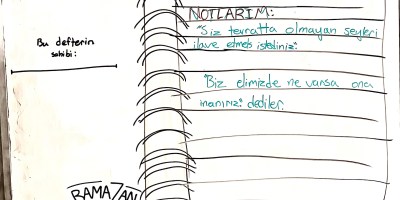 Bu defterin
sahibi:
RAMAZAN
NOTLARIM:
"Siz tevratta olmayan şeyleri
ilave etmek istediniz."
"Biz elimizde ne varsa ona
inanırız." dediler.